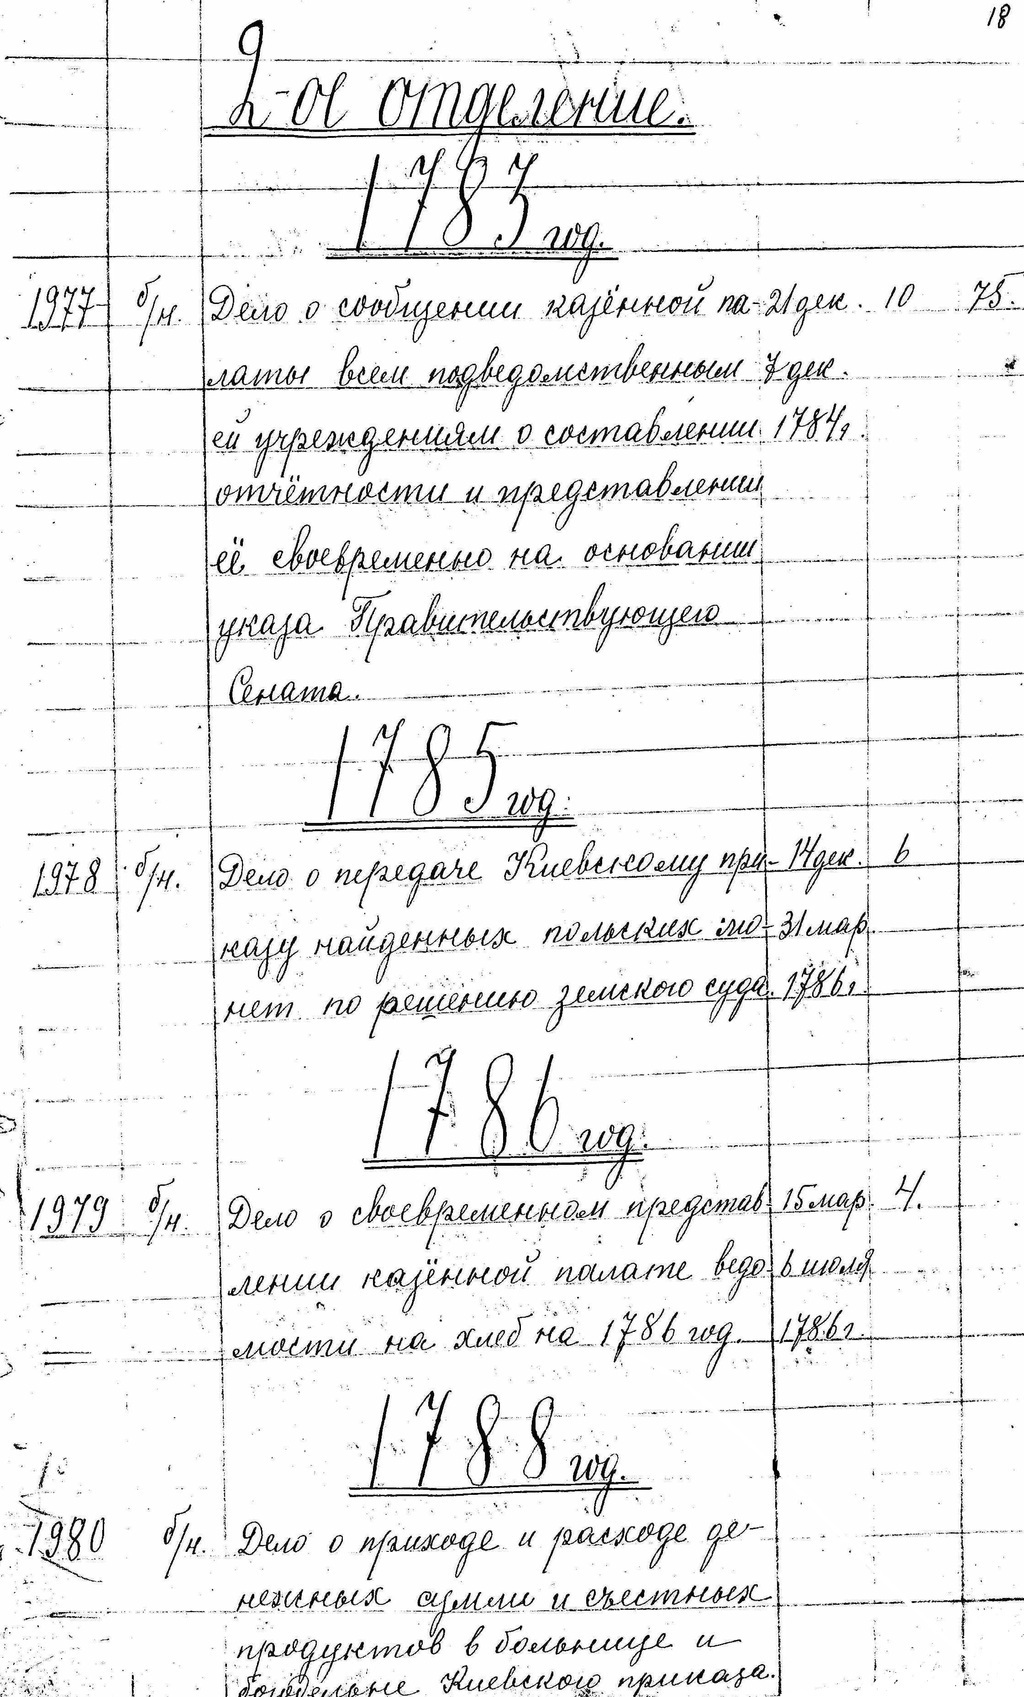 18
2-ое отделение.
1783 год.
1977 б/н. Дело о сообщении казённой па- 21 дек. 10 75
латы всем подведомственным 7 дек.
ей учреждениям о составлении 1784г.
отчётности и представлении
её своевременно на основании
указа Правительствующего
Сената.
1785 год.
1978 б/н. Дело о передаче Киевскому при- 14 дек. 6
казу найденных польских мо- 31 мар.
нет по решению земского суда. 1786г.
1786 год.
1979 б/н. Дело о своевременном представ- 15 мар. 4.
лении казённой палате ведо 6 июля
мости на хлеб на 1786 год. 1786г.
1788 год.
1980 б/н. Дело о приходе и расходе де-
нежных сумм и съестных
продуктов в больнице и
богодельне Киевского приказа.